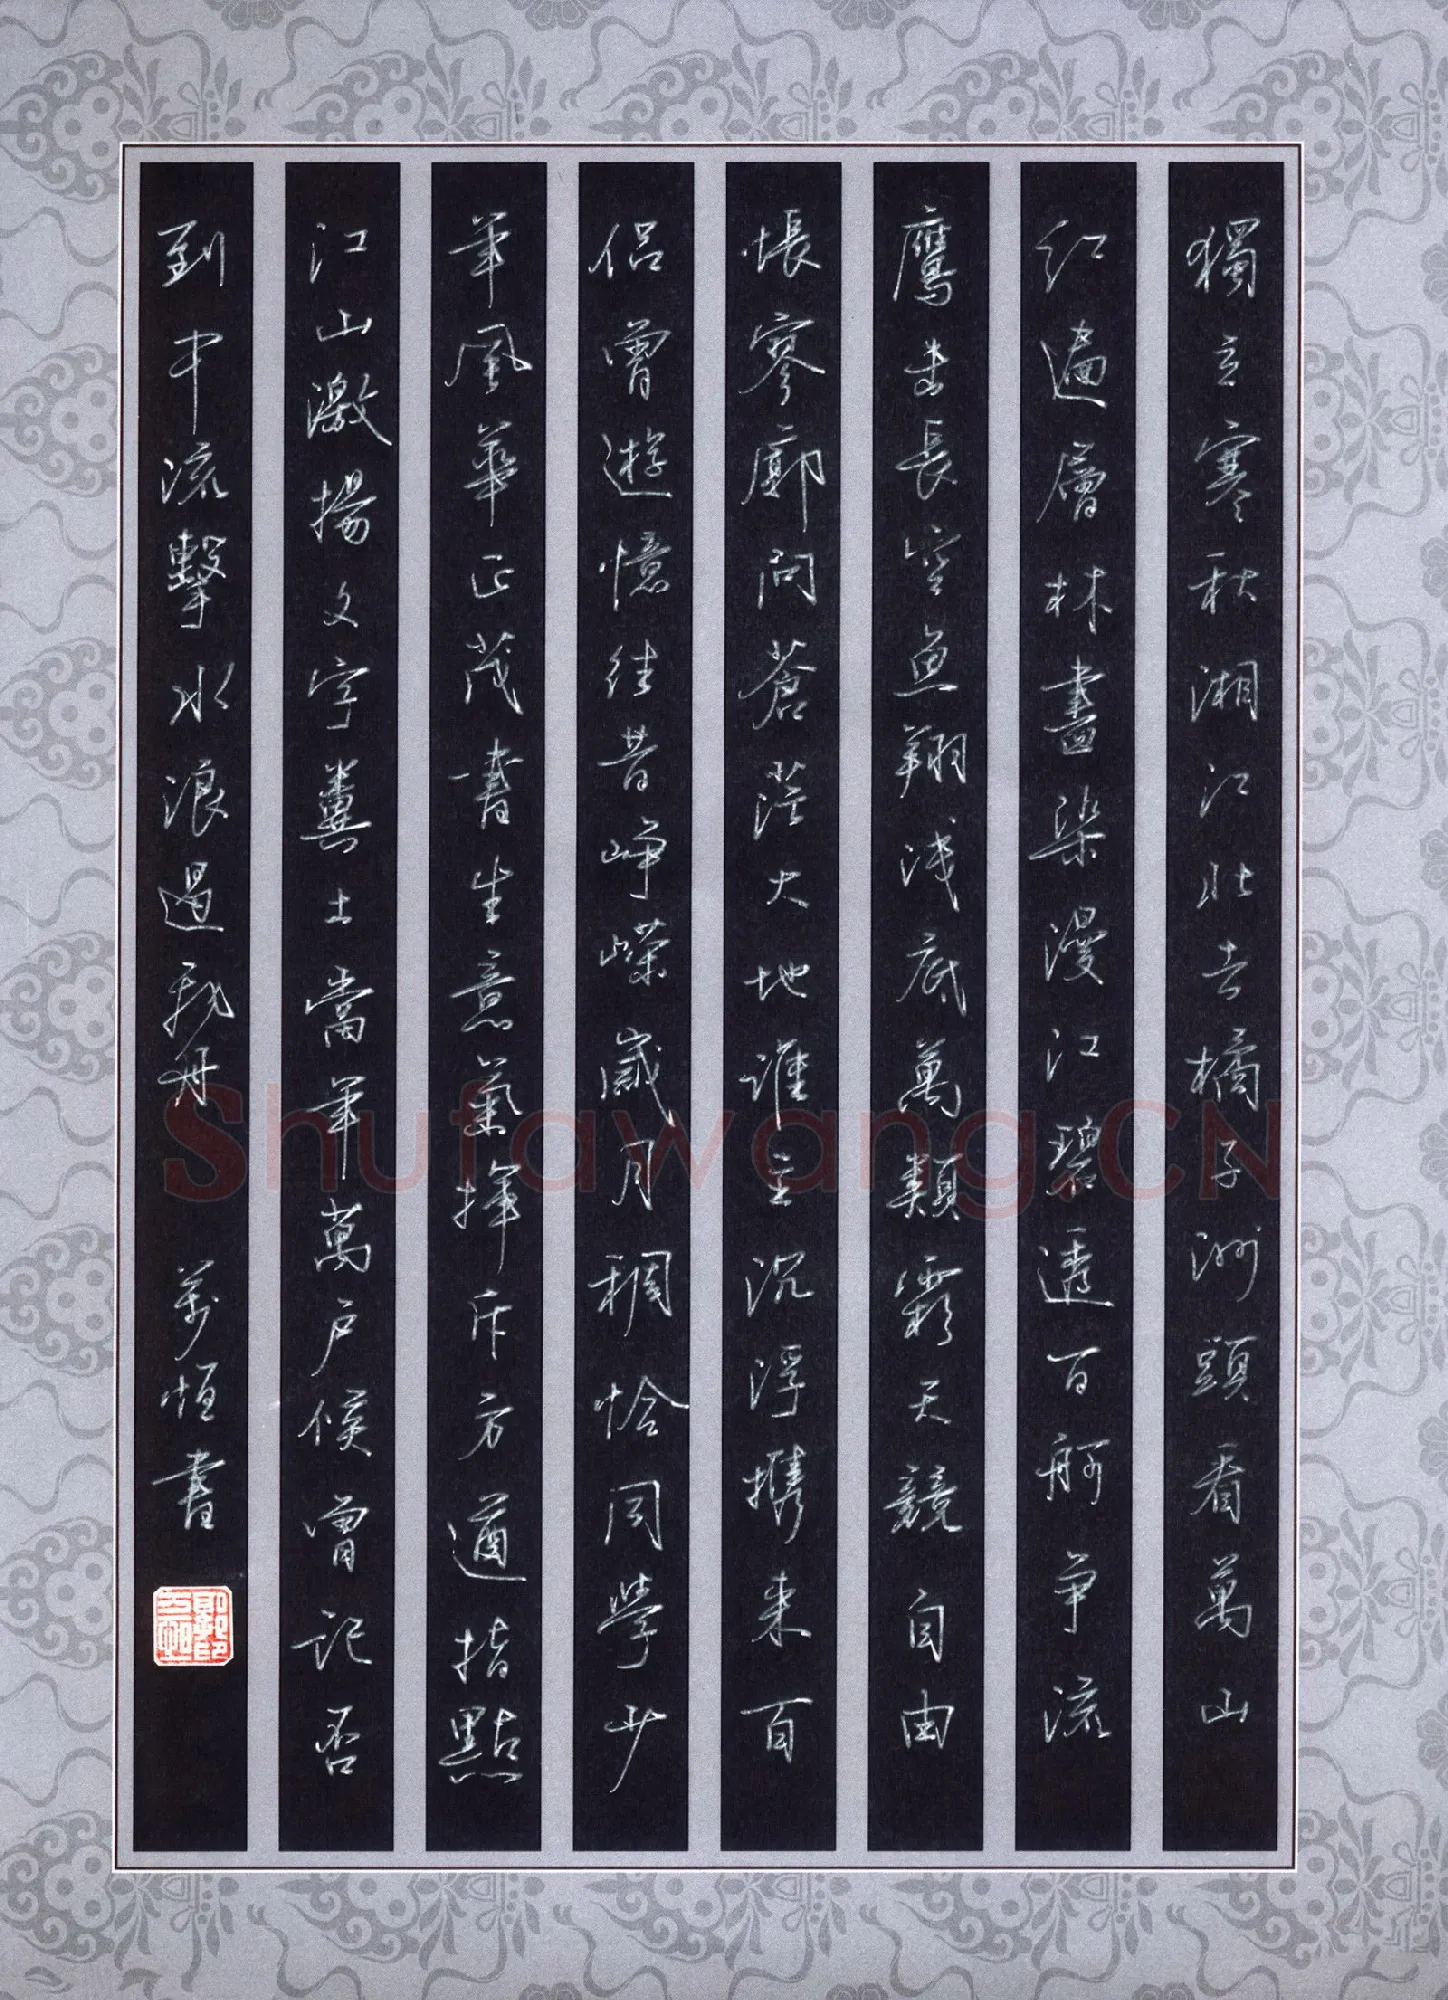 獨立寒秋湘江北去橘子洲頭看萬山
紅遍層林盡染漫江碧透百舸争流
鷹击長空魚翔浅底萬類霜天競自由
悵寥廓問蒼茫大地誰主沉浮携来百
侣曾遊憶往昔崢嶸歲月稠恰同學少
年風華正茂書生意氣揮斥方遒指點
江山激揚文字糞土當年萬户侯曾記否
到中流擊水浪遏飛舟 萬恒書
Shufawang.CN